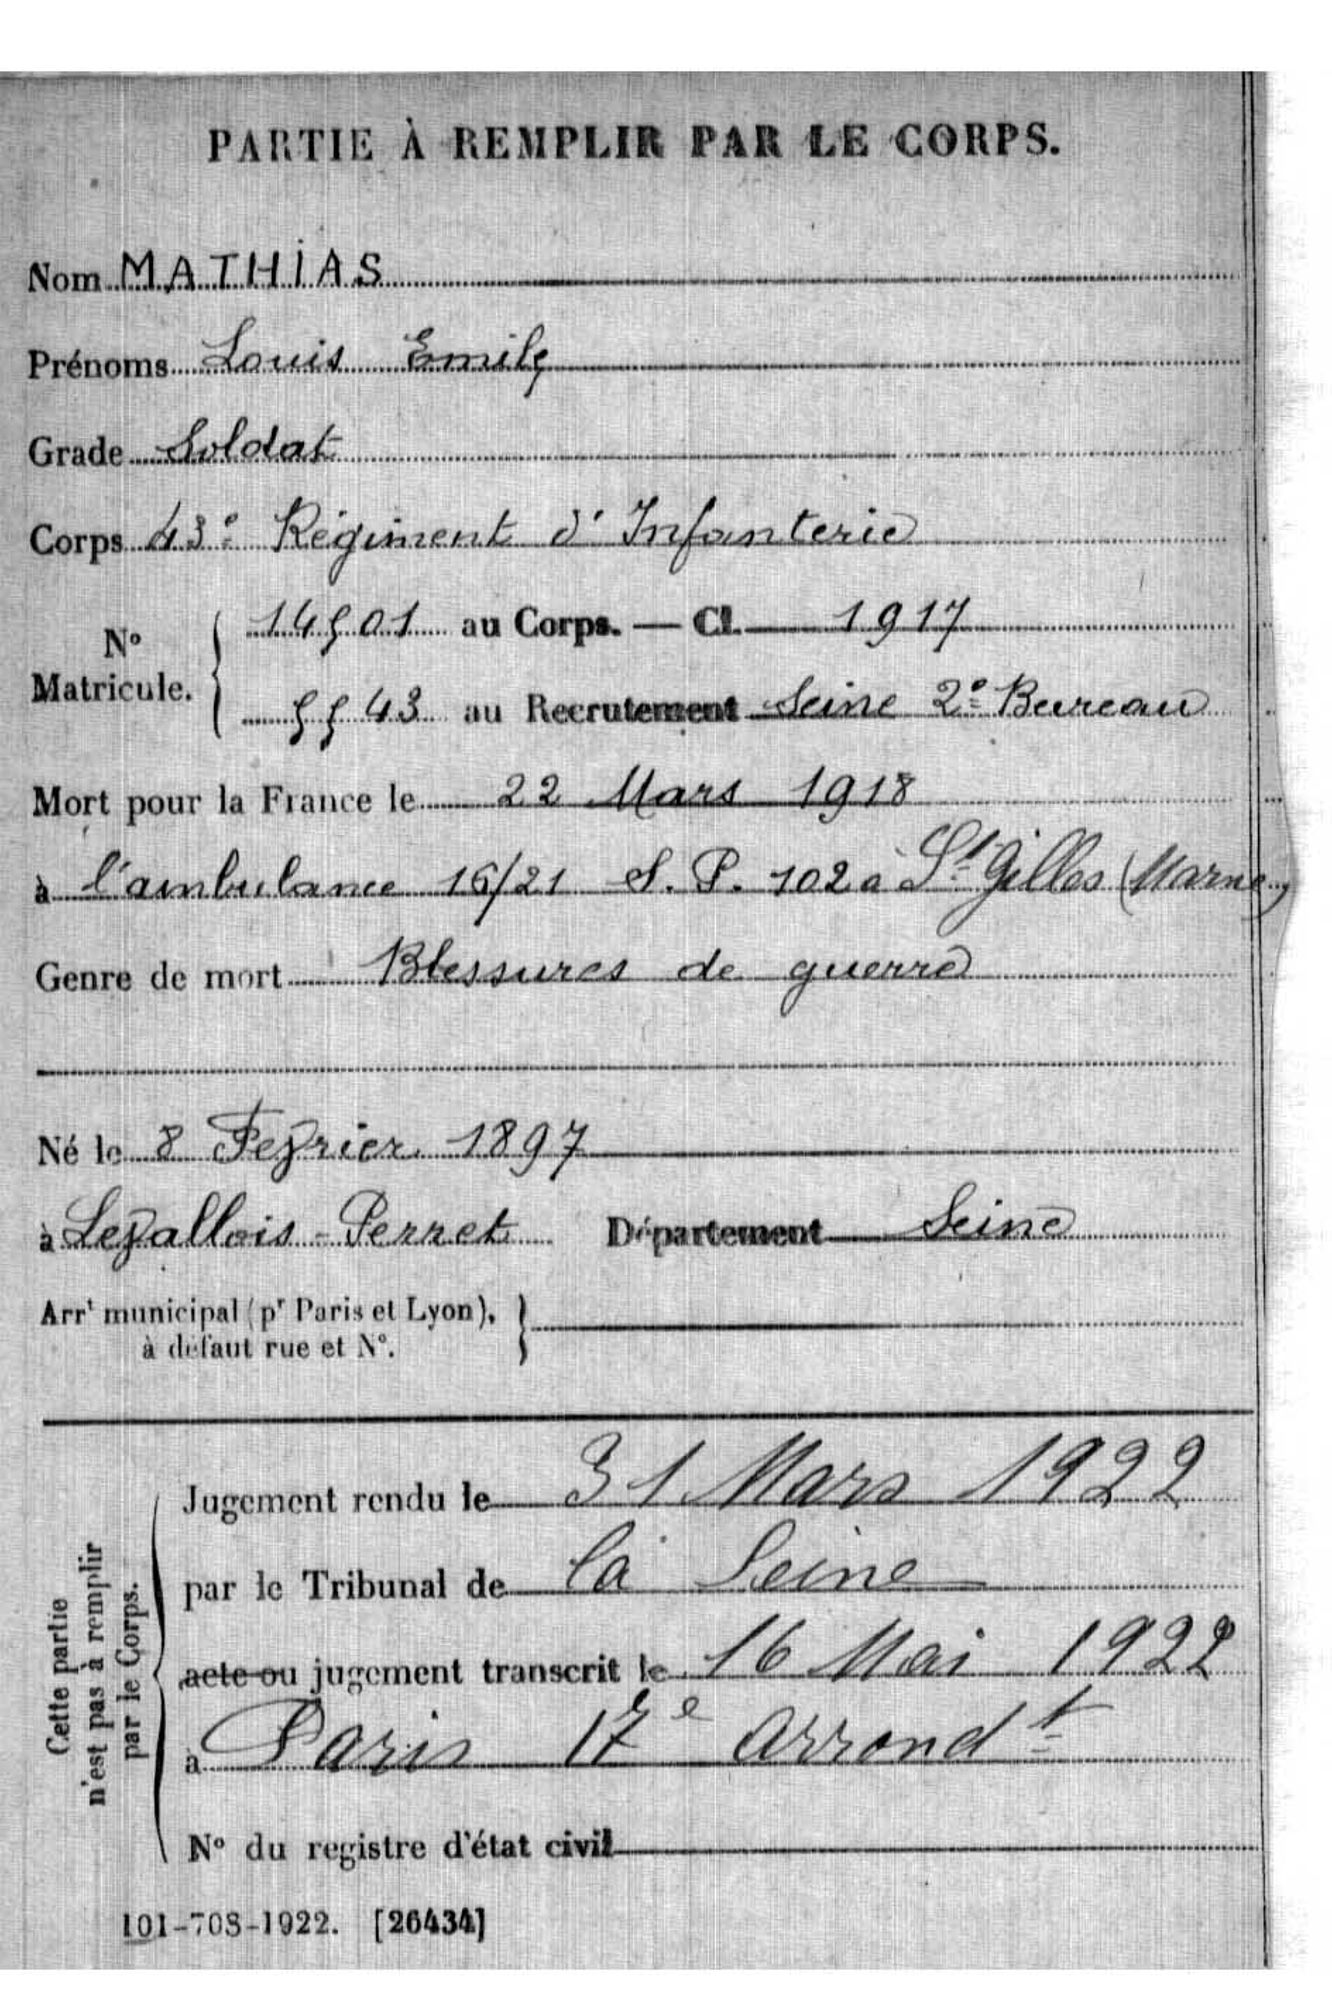 PARTIE À REMPLIR PAR LE CORPS.
Nom MATHIAS
Prénoms Louis Emile
Grade Soldat
Corps 43e Régiment d'Infanterie
N° Matricule. { 14501 au Corps. — Cl. 1917
5543 au Recrutement Seine 2e Bureau
Mort pour la France le 22 Mars 1918
à l'ambulance 16/21 S. P. 102 à St Gilles (Marne)
Genre de mort Blessures de guerre
Né le 8 Fevrier 1897
à Levallois-Perret Département Seine
Arrt municipal (pr Paris et Lyon), }
à défaut rue et N°.
Cette partie
n'est pas à remplir
par le Corps.
Jugement rendu le 31 Mars 1922
par le Tribunal de la Seine
acte ou jugement transcrit le 16 Mai 1922
à Paris 17e arrondt
N° du registre d'état civil
101-708-1922. [26434]